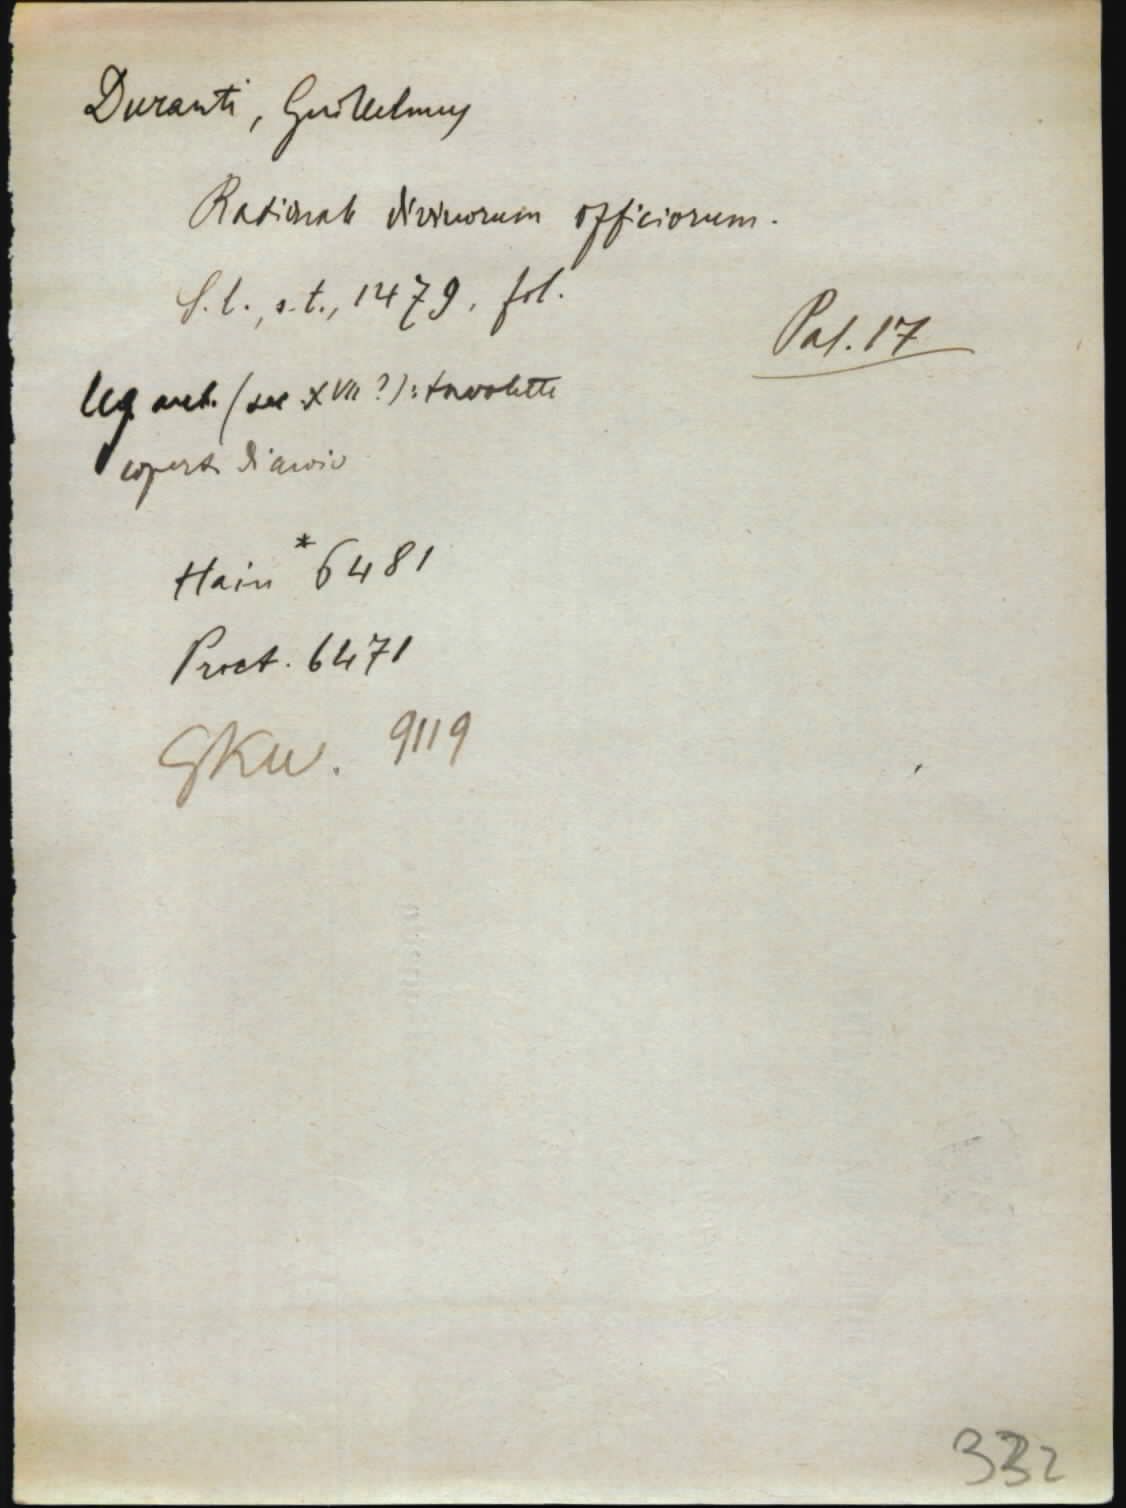 Duranti, Guillelmus
Rationale divinorum officiorum.
S. l., s. t., 1479, fol.
Pal. 17
leg. ant. (sec. XVII?): tavolette
coperte di cuoio
Hain *6481
Proct. 6471
GKW. 9119
332